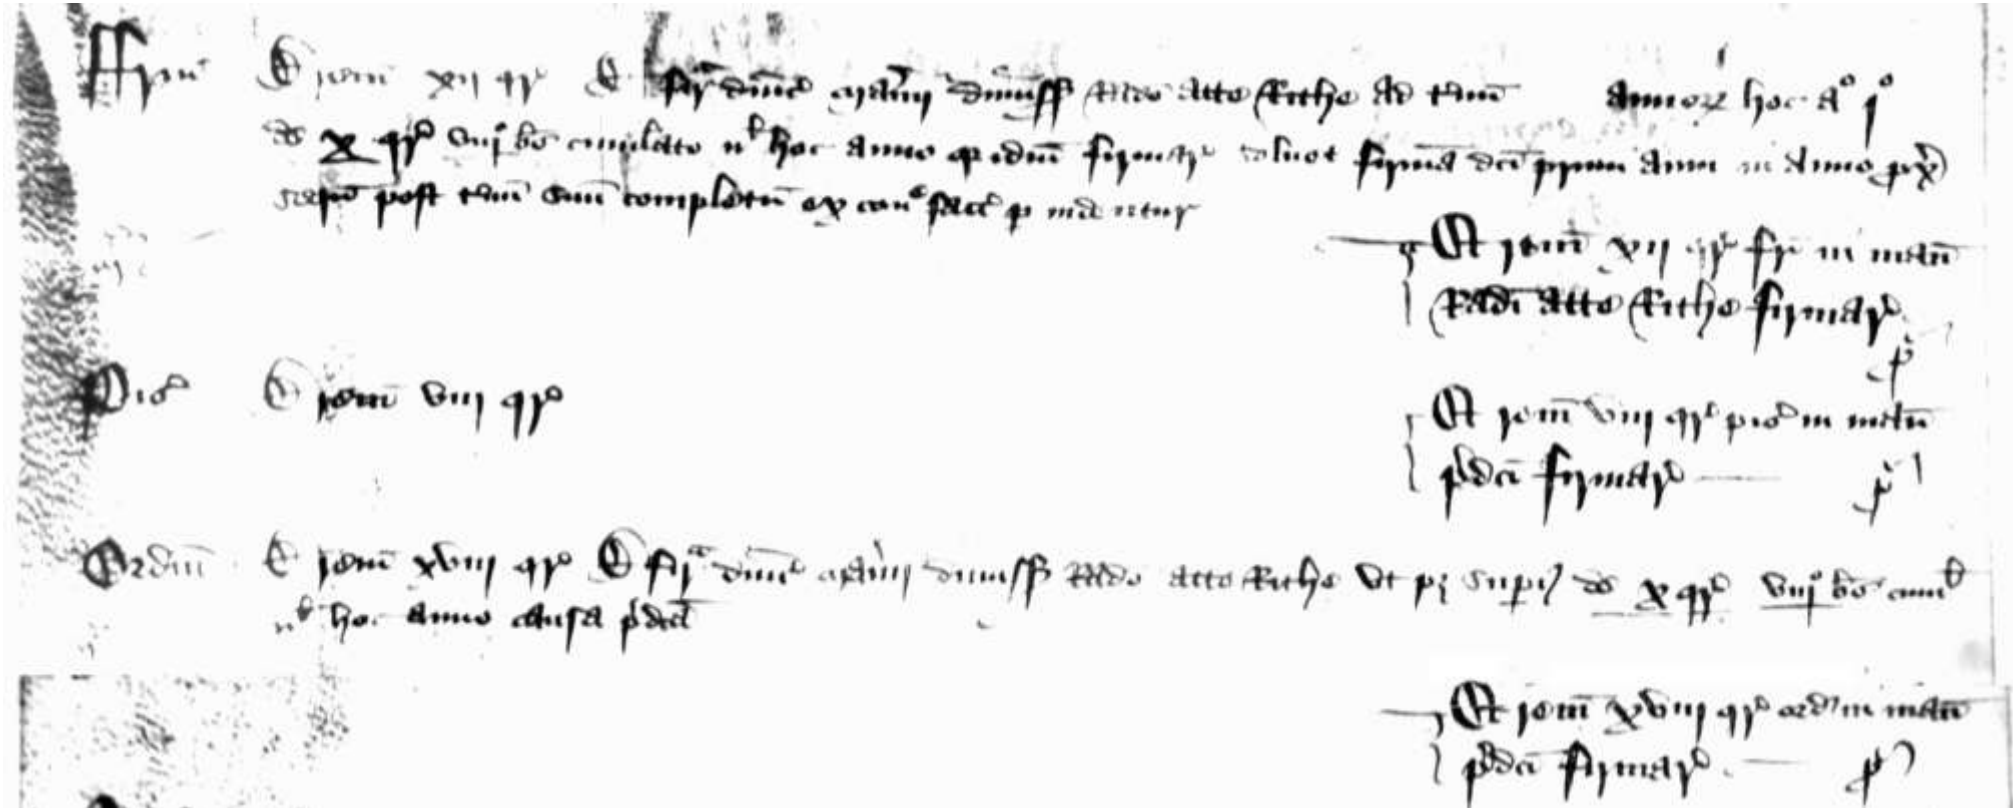 ffrm̄
E rem̄ xij qrˢ E firᵃ dnic̄ maner̄ dimiss Rado atte Rithe ad t'mū annoꝝ hoc aº jº
de x qrˢ viijº bȝ cumulato nˡ hoc anno q idm̄ firmarˢ soluet firmā dc̄i primi anni in Anno px̄
seqn̄ post t'mū suū completū ex conᵉ fact̄ p indentur
Et rem̄ xij qrˢ fr̄ in manū
Radi atte Rithe firmarˢ
pᵇ
Pisˢ
E rem̄ viij qrˢ
Et rem̄ viij qrˢ pisˢ in manū
p̄dc̄i firmarˢ pᵇ
Ordiū
E rem̄ xviij qrˢ E firᵃ dnic̄ maner̄ dimiss Rado atte Rithe vt pȝ supiˢ de x qrˢ viijº bȝ cumˡ
nˡ hoc anno causa p̄dc̄a
Et rem̄ xviij qrˢ ord' in manū
p̄dc̄i firmarˢ pᵇ